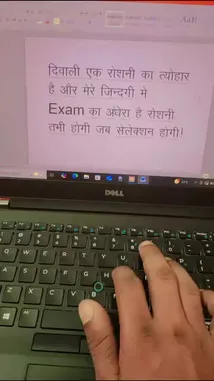 दिवाली एक रोशनी का त्योहार
है और मेरे जिन्दगी मे
Exam का अंधेरा है रोशनी
तभी होगी जब सेलेक्शन होगी!
DELL